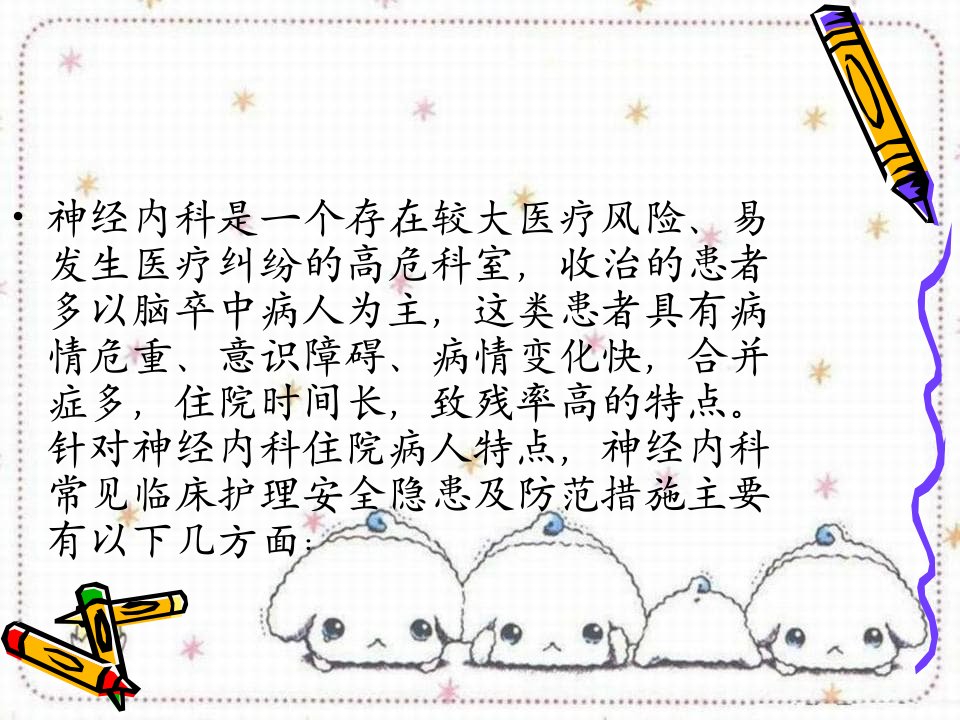 • 神经内科是一个存在较大医疗风险、易
发生医疗纠纷的高危科室，收治的患者
多以脑卒中病人为主，这类患者具有病
情危重、意识障碍、病情变化快，合并
症多，住院时间长，致残率高的特点。
针对神经内科住院病人特点，神经内科
常见临床护理安全隐患及防范措施主要
有以下几方面：